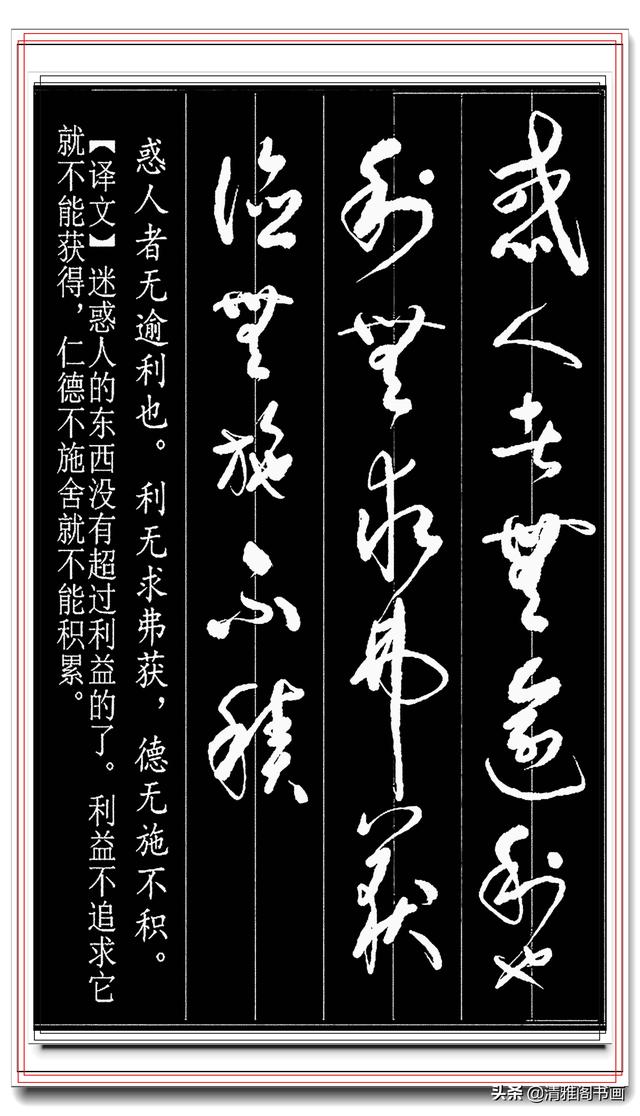 惑人者無逾利也
利無求弗获
德無施不積
惑人者无逾利也。利无求弗获，德无施不积。
【译文】迷惑人的东西没有超过利益的了。利益不追求它
就不能获得，仁德不施舍就不能积累。
头条 @清雅阁书画